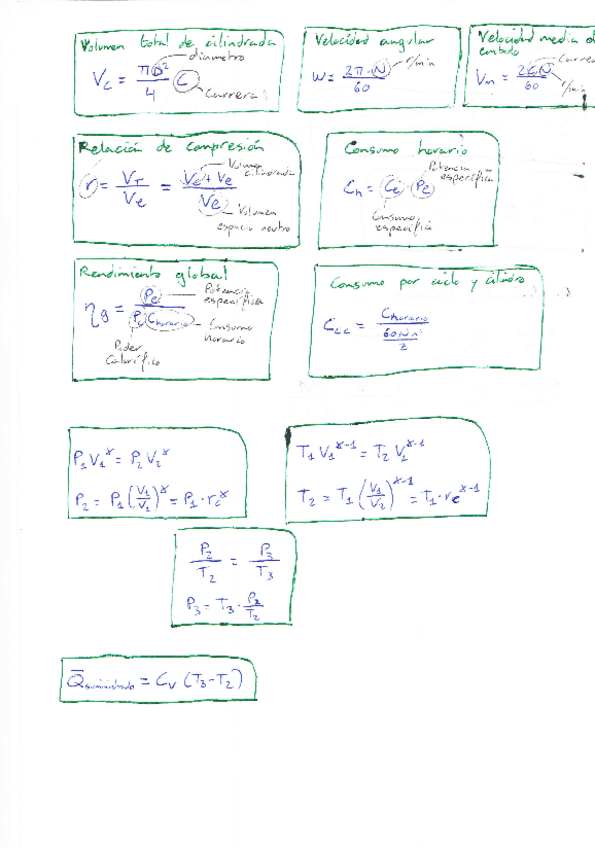 Volumen total de cilindrada
diametro
Vc = πD²/4 C
carrera
Velocidad angular
W = 2π·N/60
r/min
Velocidad media
embolo
Vm = 2CN/60
carrera
r/min
Relación de compresión
r = VT/Ve = Vc+Ve/Ve
Volumen cilindrada
Volumen
espacio neutro
Consumo horario
Ch = Ce Pe
Potencia
especifica
Consumo
especific
Rendimiento global
ηg = Pe/Pc Chorario
Potencia
especifica
Consumo
horario
Poder
Calorífico
Consumo por ciclo y cilindro
Ccc = Chorario
P₁V₁^γ = P₂V₂^γ
P₂ = P₁(V₁/V₂)^γ = P₁·rc^γ
T₁V₁^γ-1 = T₂V₁^γ-1
T₂ = T₁(V₁/V₂)^γ-1 = T₁·rc^γ-1
P₂/T₂ = P₃/T₃
P₃ = T₃·P₂/T₂
Q suministrado = Cv (T₃-T₂)